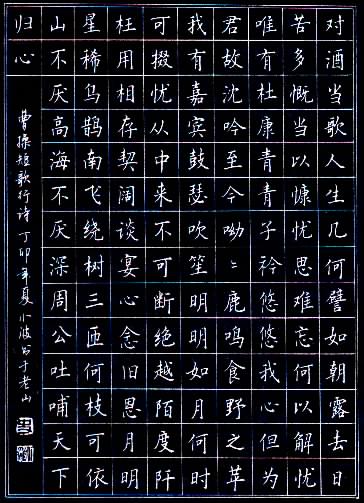 对酒当歌人生几何譬如朝露去日
苦多慨当以慷忧思难忘何以解忧
唯有杜康青青子衿悠悠我心但为
君故沈吟至今呦〻鹿鸣食野之苹
我有嘉宾鼓瑟吹笙明明如月何时
可掇忧从中来不可断绝越陌度阡
枉用相存契阔谈宴心念旧恩月明
星稀乌鹊南飞绕树三匝何枝可依
山不厌高海不厌深周公吐哺天下
归心
曹操短歌行诗 丁卯年夏 小波书于老山